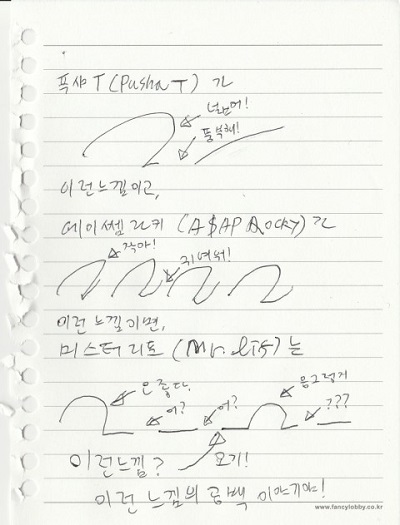 푸샤 T (Pusha T) 가
넓어!
풍부해!
이런 느낌이고,
에이셉 라키 (A$AP Rocky) 가
작아!
귀여워!
이런 느낌이면,
미스터 리프 (Mr. Lif) 는
오 좋다.
어?
어?
음 그렇게
???
이런느낌?
요기!
이런 느낌의 공백 이야기야!
www.fancylobby.co.kr